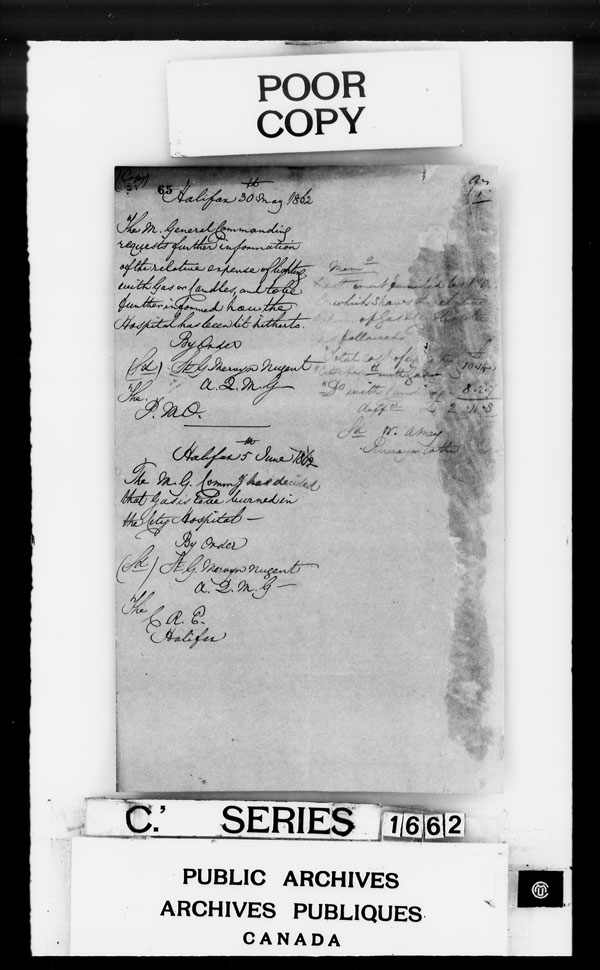 POOR
COPY
(Copy)
65
Halifax 30th May 1862
The M. General Commanding
requests further information
of the relative expense of lighting
with Gas or Candles, and to be
further informed how the
Hospital has been lit hitherto.
By Order
(Sd) St G. Mervyn Nugent
A. Q. M. G
The
P. M. O.
Memo
which shows the
of Gas
follows
Total cost of
with Gas
"Do with
diffce 2 . 11 . 8
Sd W.
Halifax 5th June 1862
The M. G. Commg has decided
that Gas is to be burned in
the City Hospital —
By Order
(Sd) St G. Mervyn Nugent
A. Q. M. G —
The
C R. E.
Halifax
C.' SERIES 1662
PUBLIC ARCHIVES
ARCHIVES PUBLIQUES
CANADA